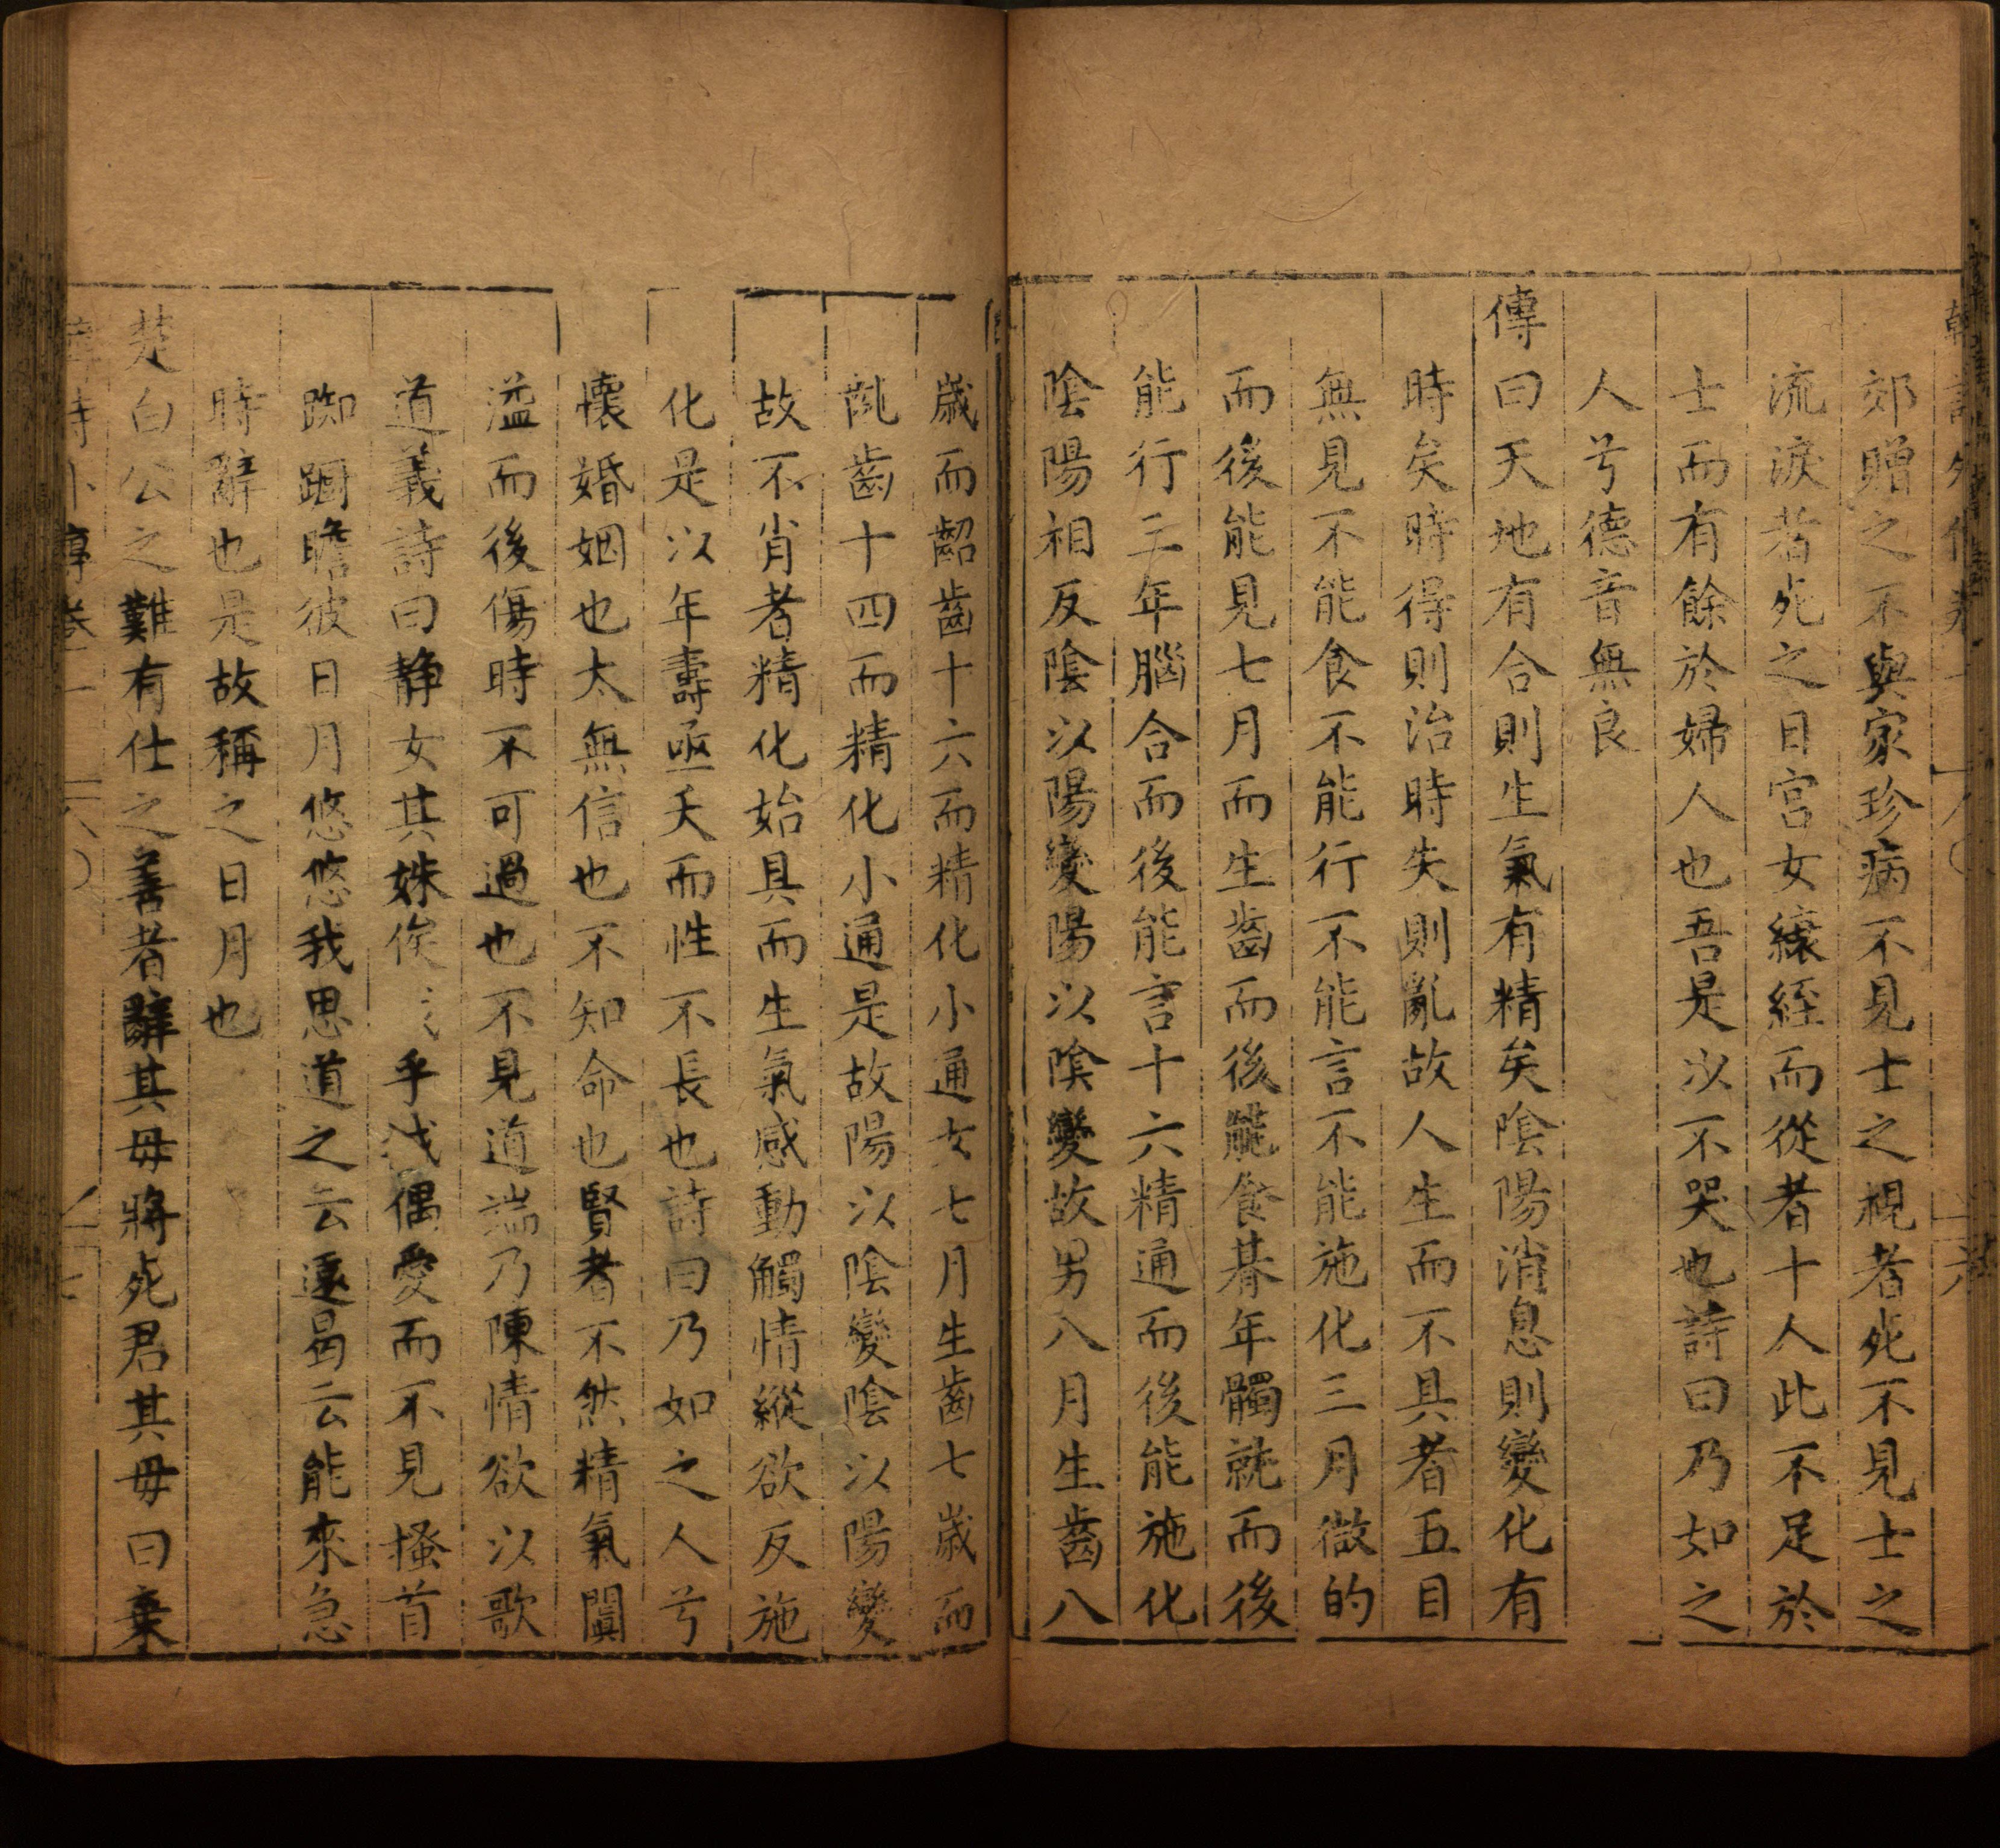 郊贈之不與家珍病不見士之視者死不見士之
流淚者死之日宮女縗絰而從者十人此不足於
士而有餘於婦人也吾是以不哭也詩曰乃如之
人兮德音無良
傳曰天地有合則生氣有精矣陰陽消息則變化有
時矣時得則治時失則亂故人生而不具者五目
無見不能食不能行不能言不能施化三月微的
而後能見七月而生齒而後能食朞年髑就而後
能行三年腦合而後能言十六精通而後能施化
陰陽相反陰以陽變陽以陰變故男八月生齒八
歲而齠齒十六而精化小通女七月生齒七歲而
齔齒十四而精化小通是故陽以陰變陰以陽變
故不肖者精化始具而生氣感動觸情縱欲反施
化是以年壽亟夭而性不長也詩曰乃如之人兮
懷婚姻也太無信也不知命也賢者不然精氣闐
溢而後傷時不可過也不見道端乃陳情欲以歌
道義詩曰静女其姝俟乎城偶愛而不見搔首
踟躕瞻彼日月悠悠我思道之云遠曷云能來急
時辭也是故稱之日月也
楚白公之難有仕之善者辭其母將死君其母曰棄